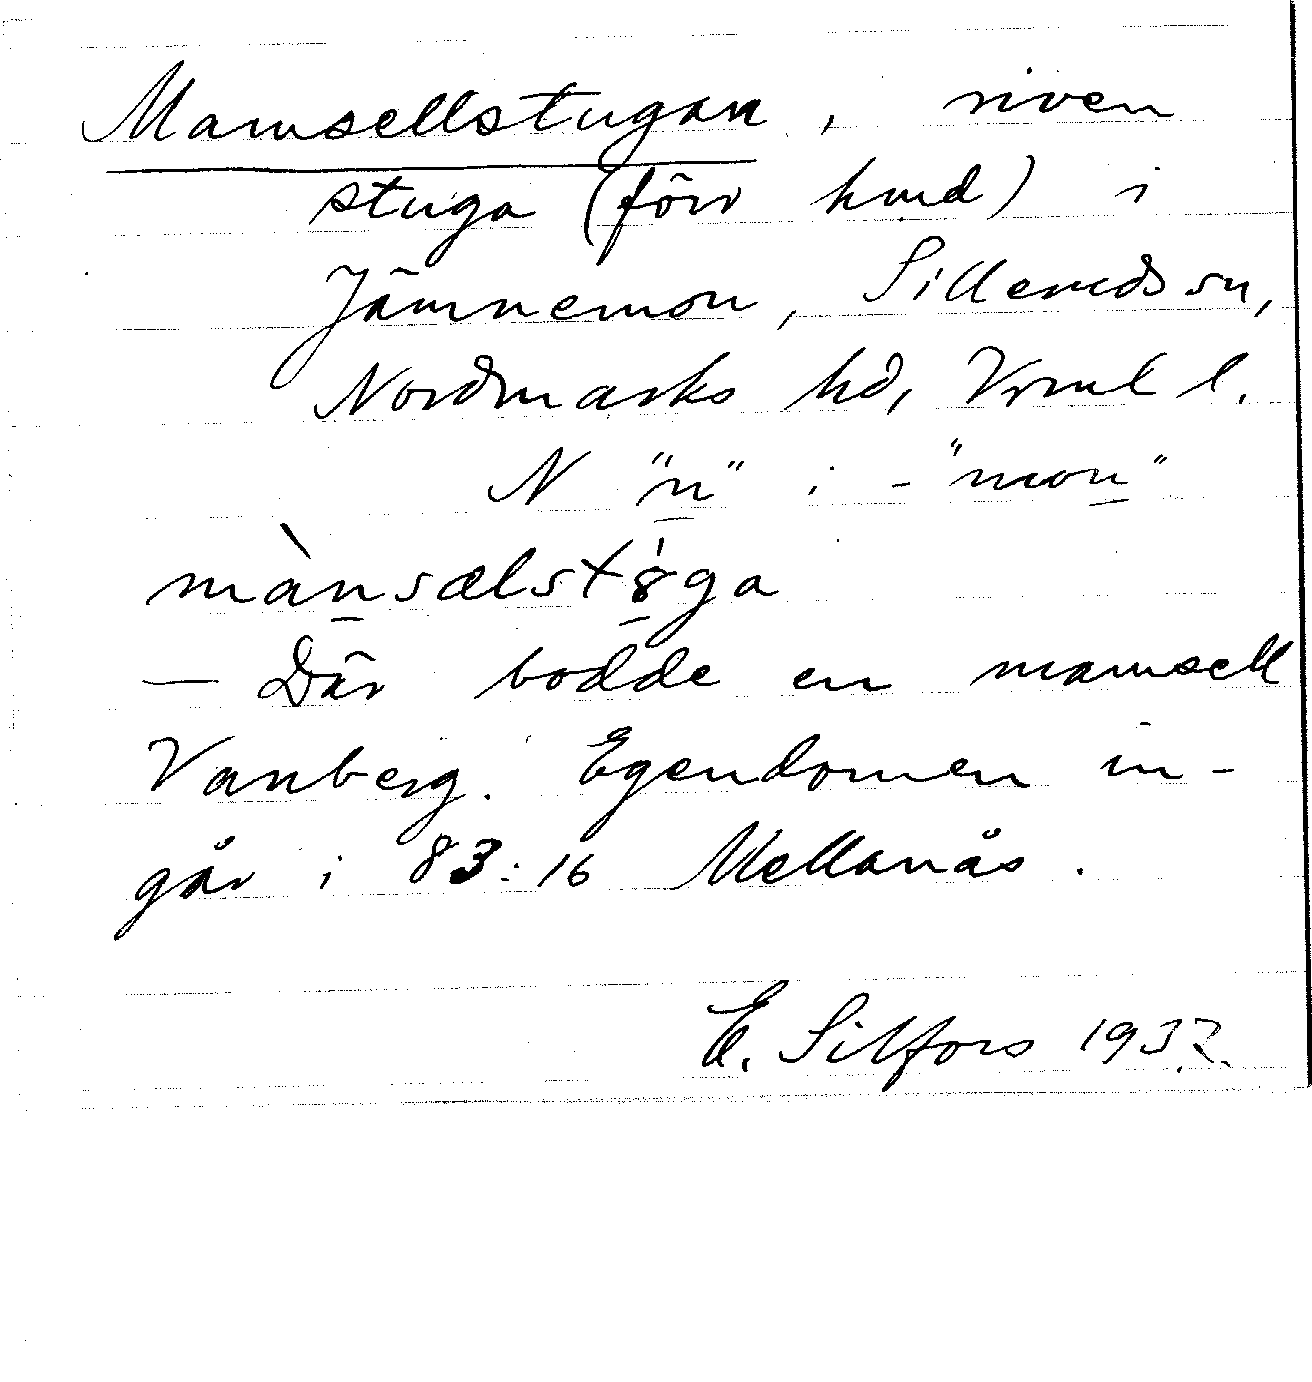 Mamsellstugan, riven
stuga (förr hmd) i
Jämnemon, Silleruds sn,
Nordmarks hd, Vrml l.
N "n" i -"mon"
mànsælst8̍ga
— Där bodde en mamsell
Vanberg. Egendomen in-
går i 83:16 Mellanås.
E. Silfors 1932.